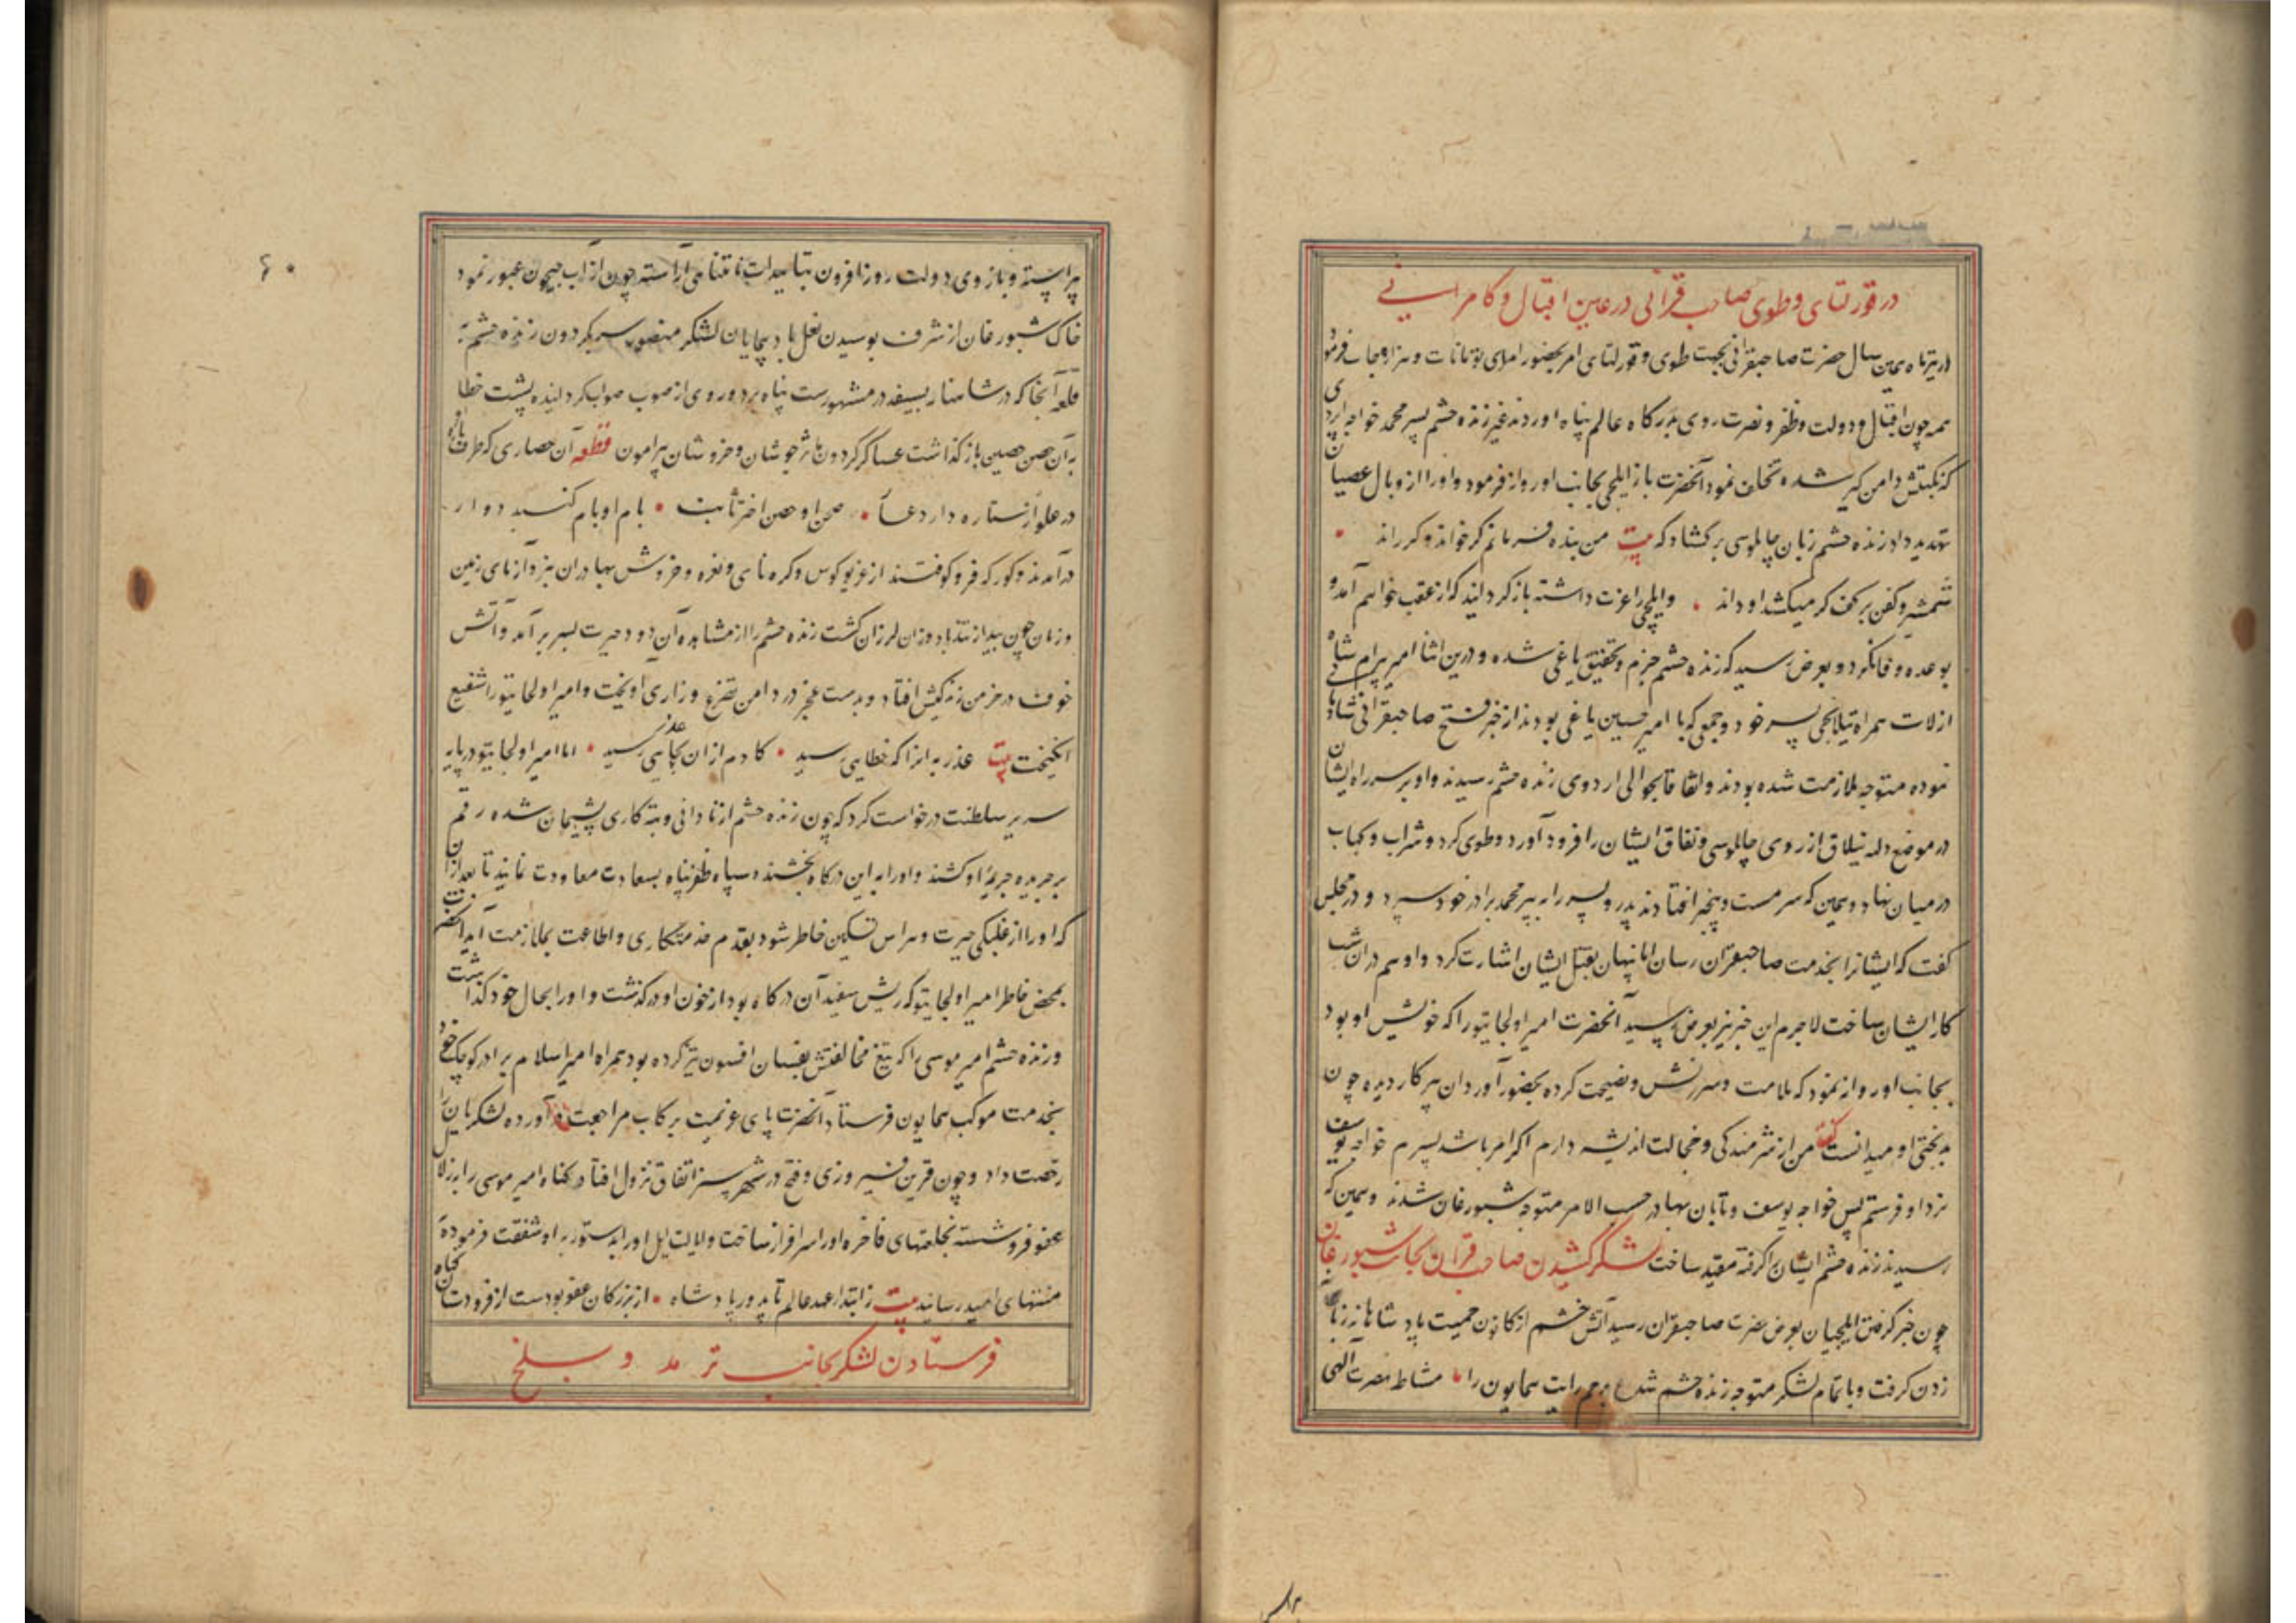 در قورلتای و طوی صاحب قرانی در عین اقبال و کامرانی
در تیرماه همین سال حضرت صاحبقرانی بجهت طوی و قورلتای امر بحضور امرای تومانات و هزارجات فرمود
همه چون اقبال و دولت و ظفر و نصرت روی بدرگاه عالم پناه اوردند غیر زنده حشم پسر محمد خواجه اپردی
که نکبتش دامن گیر شده تخلف نمود آنحضرت باز ایلچی بجانب او روانه فرمود و او را از وبال عصیان
تهدید داد زنده حشم زبان چاپلوسی برکشاد که بیت من بنده فرمانم گر خواند و گر راند
شمشیر و کفن بر کف گر میکشد او داند و ایلچی را عزت داشته باز گردانید که از عقب خواهم آمد و
بوعده وفا نکرد و بعرض رسید که زنده حشم جزم و تحقیق یاغی شده و درین اثنا امیر پیرام شاه
ارلات همراه تیلانجی پسر خود و جمعی که با امیر حسین یاغی بودند از خبر فتح صاحبقرانی شادیها
نموده متوجه ملازمت شده بودند و اتفاقا بحوالی اردوی زنده حشم رسیدند و او بر سر راه ایشان
در موضع دله نیلاق از روی چاپلوسی و نفاق ایشان را فرود آورد و طوی کرد و شراب و کباب
در میان نهاد و همین که سرمست و بیخبر افتادند پدر و پسر را به پیر محمد برادر خود سپرد و در مجلس
گفت که ایشانرا بخدمت صاحبقران رسان اما پنهان بقتل ایشان اشارت کرد و او هم در ان شب
کار ایشان ساخت لاجرم این خبر نیز بعرض رسید آنحضرت امیر اولجایتو را که خویش او بود
بجانب او روانه نمود که ملامت و سرزنش و نصیحت کرده بحضور آورد ان پیر کار دیده چون
بدبختی او میدانست گفت من از شرمندگی و خجالت اندیشه دارم اگر امر باشد پسرم خواجه یوسف
نزد او فرستم پس خواجه یوسف و تابان بهادر حسب الامر متوجه شبورغان شدند و همین که
رسیدند زنده حشم ایشان را گرفته مقید ساخت لشکر کشیدن صاحب قران بجانب شبورغان
چون خبر گرفتن ایلچیان بعرض حضرت صاحبقران رسید آتش خشم از کانون حمیت پادشاهانه زبانه
زدن گرفت و با تمام لشکر متوجه زنده حشم شد پرچم رایت همایون را مشاطه نصرت آلهی
۶۰
پیراسته و بازوی دولت روز افزون بتاییدات نامتناهی آراسته چون از آب جیحون عبور نمود
خاک شبورغان از شرف بوسیدن نعل بادپایان لشکر منصور سر بگردون زنده حشم به
قلعه آنجا که در شاهنامه بسفید دز مشهورست پناه برد و روی از صوب صواب گردانیده پشت خطا
به آن حصن حصین باز گذاشت عساکر گردون ماثر جوشان و خروشان پیرامون قطعه آن حصاری که طرف باره
در علو از ستاره دارد عار صحن او صحن اختر ثابت بام او بام گنبد دوار
در آمدند و کورکه فرو کوفتند از غریو کوس و کره نای و نعره و خروش بهادران نبرد آزمای زمین
و زمان چون بید از تند باد وزان لرزان گشت زنده حشم را از مشاهده آن دود حیرت بسر بر آمد و آتش
خوف در خرمن زندگیش افتاد و بدست عجز در دامن تضرع و زاری اویخت و امیر اولجایتو را شفیع
انگیخت بیت عذر به انرا که خطایی رسید کادم ازان عذر بجایی رسید اما امیر اولجایتو در پایه
سریر سلطنت درخواست کرد که چون زنده حشم از نادانی و تبه کاری پشیمان شده رقم
بر جریده جریمه او کشند و او را به این درگاه بخشنده سپاه ظفرپناه بسعادت معاودت نمایند تا بعد از آن
که او را از غلبگی حیرت و هراس تسکین خاطر شود بقدم خدمتکاری و اطاعت بملازمت آید آنحضرت
بمحض خاطر امیر اولجایتو که ریش سفید آن درگاه بود از خون او درگذشت و او را بحال خود گذاشت
و زنده حشم امیر موسی را که تیغ مخالفتش بفسان افسون تیز کرده بود همراه امیر اسلام برادر کوچک خود
بخدمت موکب همایون فرستاد آنحضرت پای عزیمت برکاب مراجعت در آورده لشکریان را
رخصت داد و چون قرین فیروزی و فتح در شهر سبز اتفاق نزول افتاد گناه امیر موسی را بزلال
عفو فرو شسته بخلعتهای فاخره او را سرافراز ساخت و الایت ایل او را بدستور به او شفقت فرموده
منتهای امید رسانید بیت ز ابتداء عهد عالم تا بدور پادشاه از بزرگان عفو بودست از فرودستان گناه
فرستادن لشکر بجانب ترمد و بلخ